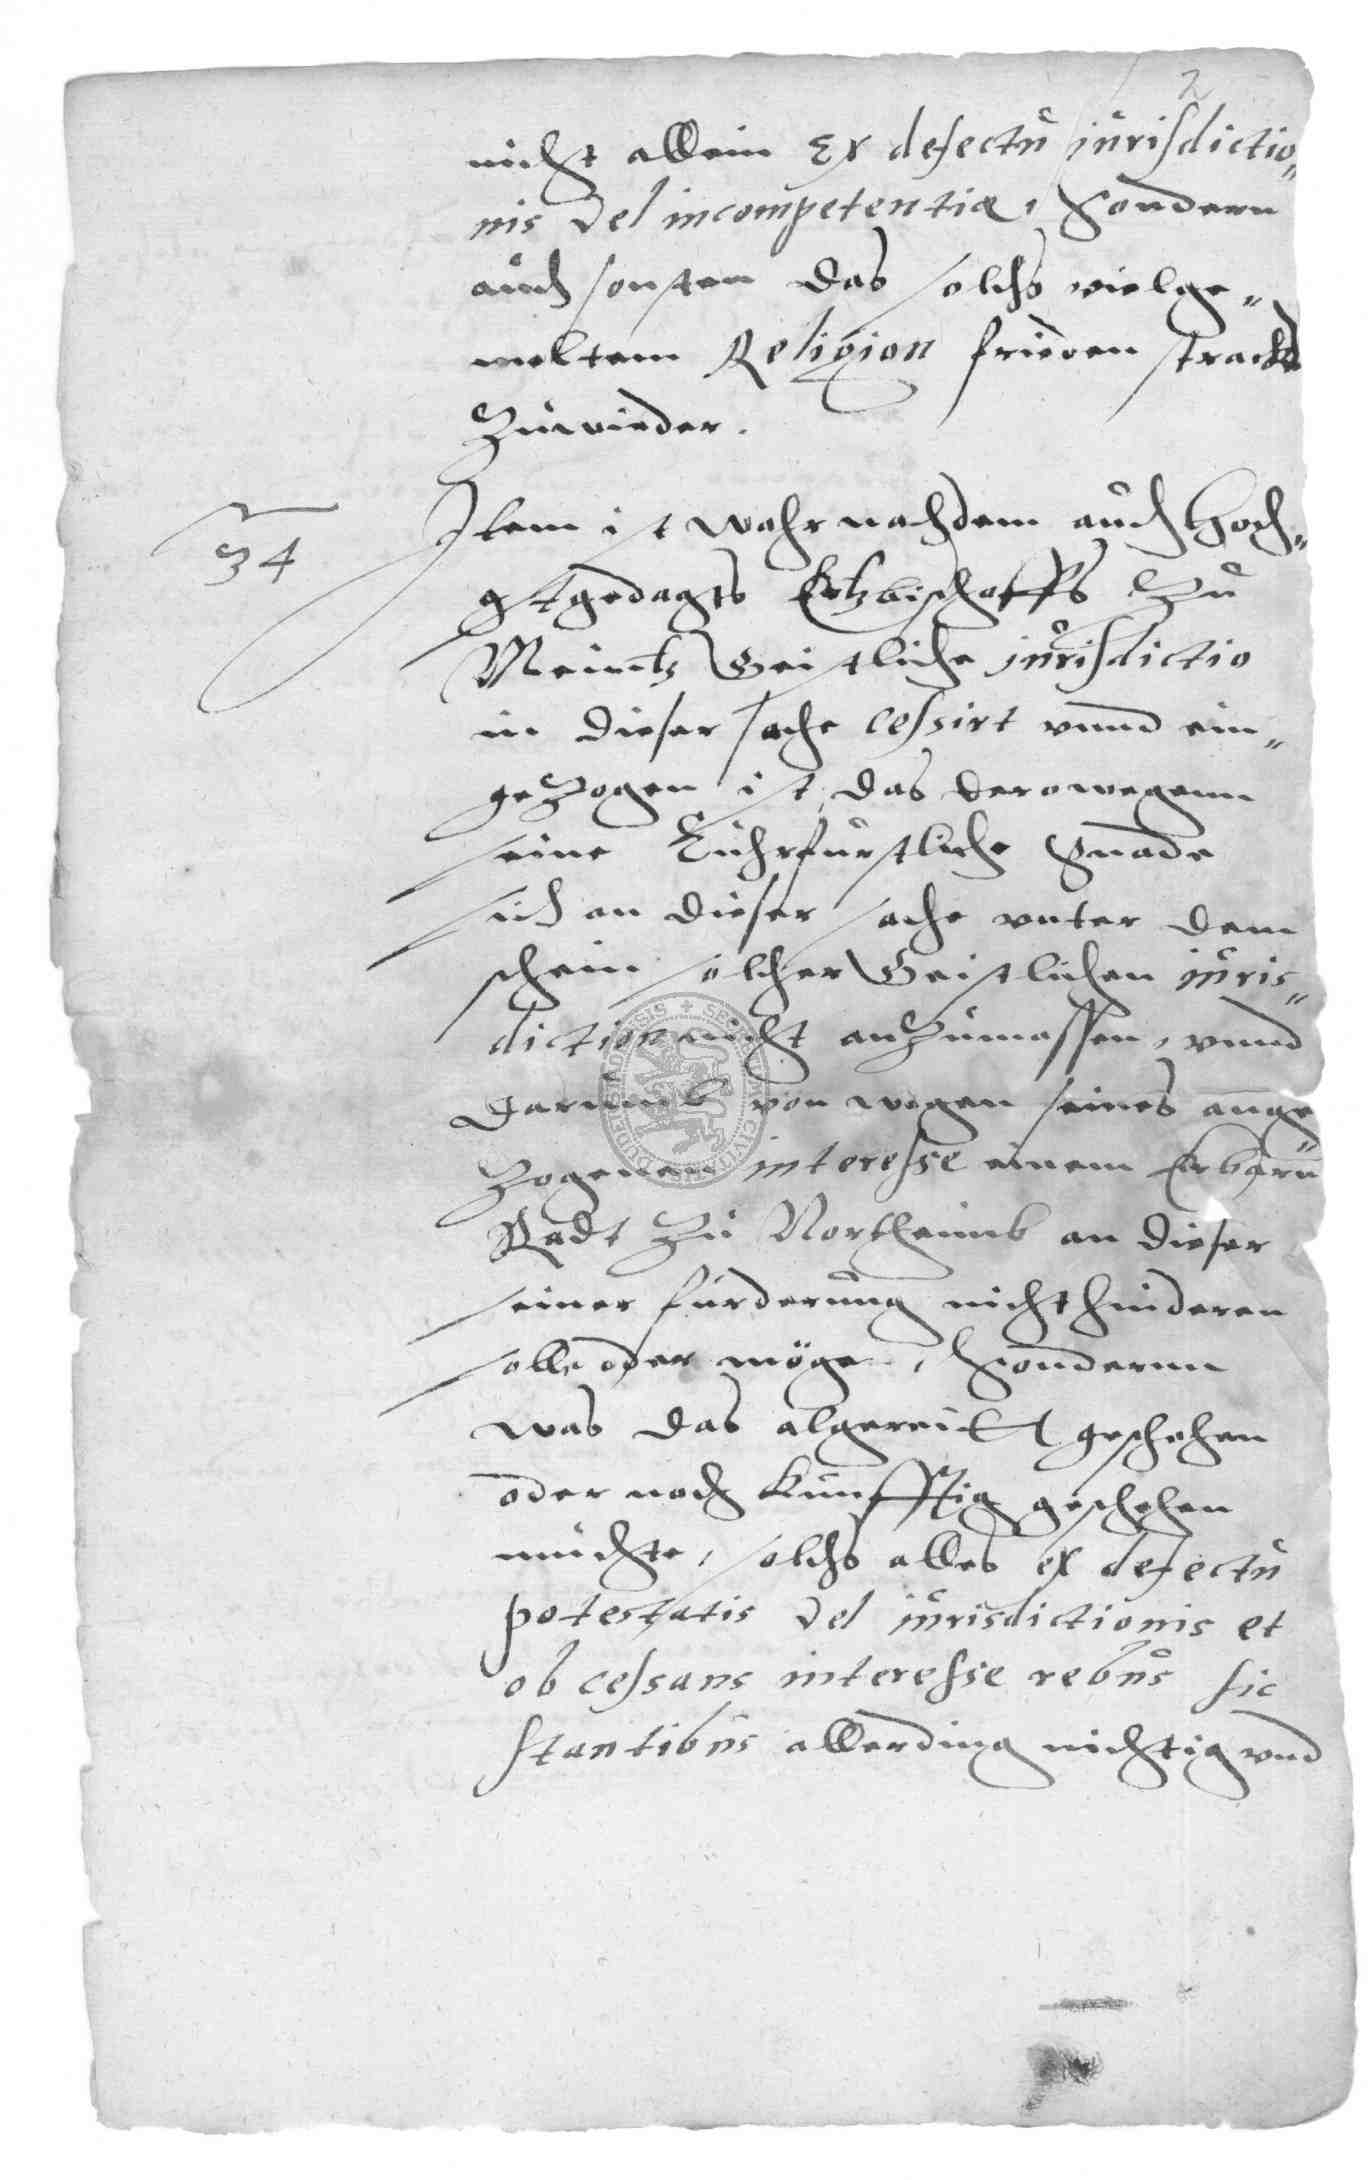 2
nicht allein Ex defectu jurisdictio„
nis vel incompetentiæ, Sondern
auch sonsten das solchs vielge„
meltem Religion frieden stracks
zuwieder.
34
Item ist wahr nachdem auch Hoch„
gedagts Ertzbischoffs zu
Meintz Geistliche jurisdictio
in dieser sache cessirt vnnd ein„
gezogen ist, das derowegenn
seine Chuhrfurstliche Gnade
sich an dieser sache vnter dem
schein solcher Geistlichen juris„
diction nicht anzumassen, vnnd
darumb von wegen seines ange„
zogenen interesse einem Erbarn
Radt zu Northeimb an dieser
seiner furderung nicht hinderen
solle oder möge, Sondernn
was das algereit geschehen
oder noch kunfftig geschehen
muchte, solchs alles ex defectu
potestatis vel jurisdictionis et
ob cessans interesse rebus sic
stantibus allerding nichtig vnd